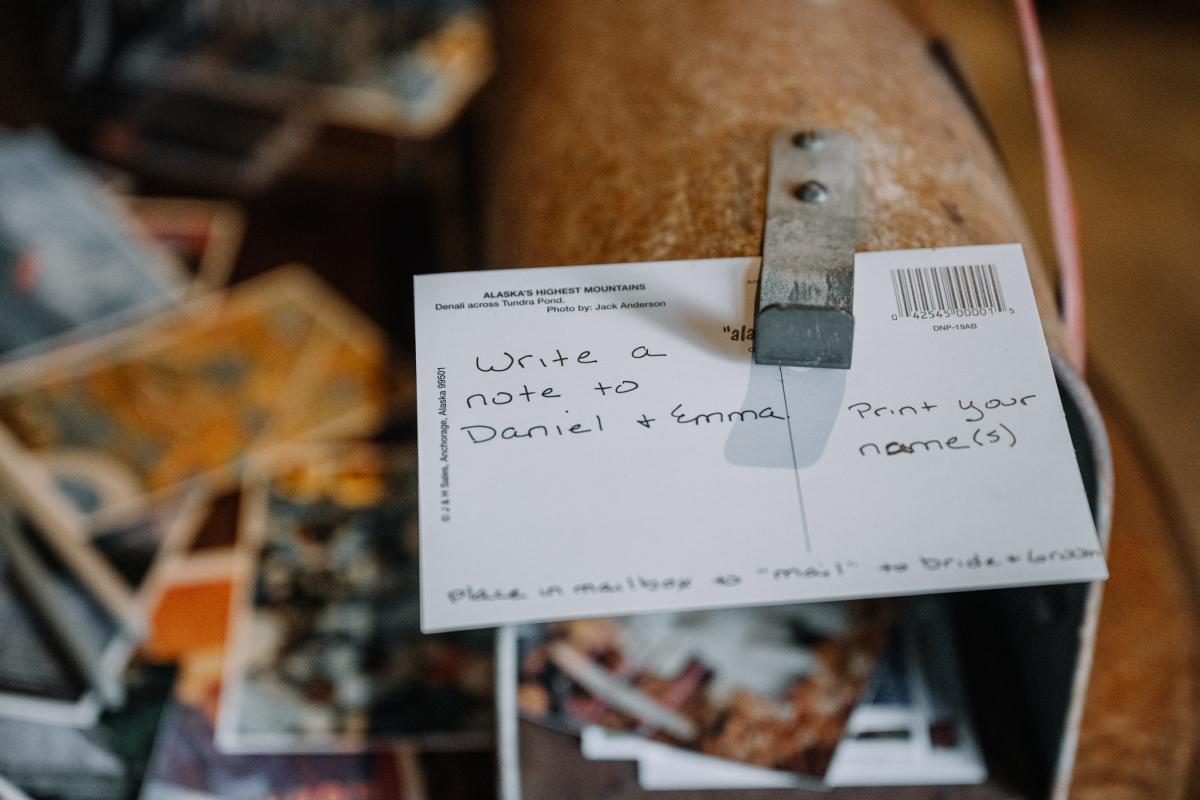 ALASKA'S HIGHEST MOUNTAINS
Denali across Tundra Pond.
Photo by: Jack Anderson
© J & H Sales, Anchorage, Alaska 99501
"ala
Write a
note to
Daniel + Emma
0 42545 00001 5
DNP-19AB
Print your
name(s)
place in mailbox to "mail" to bride + Groom